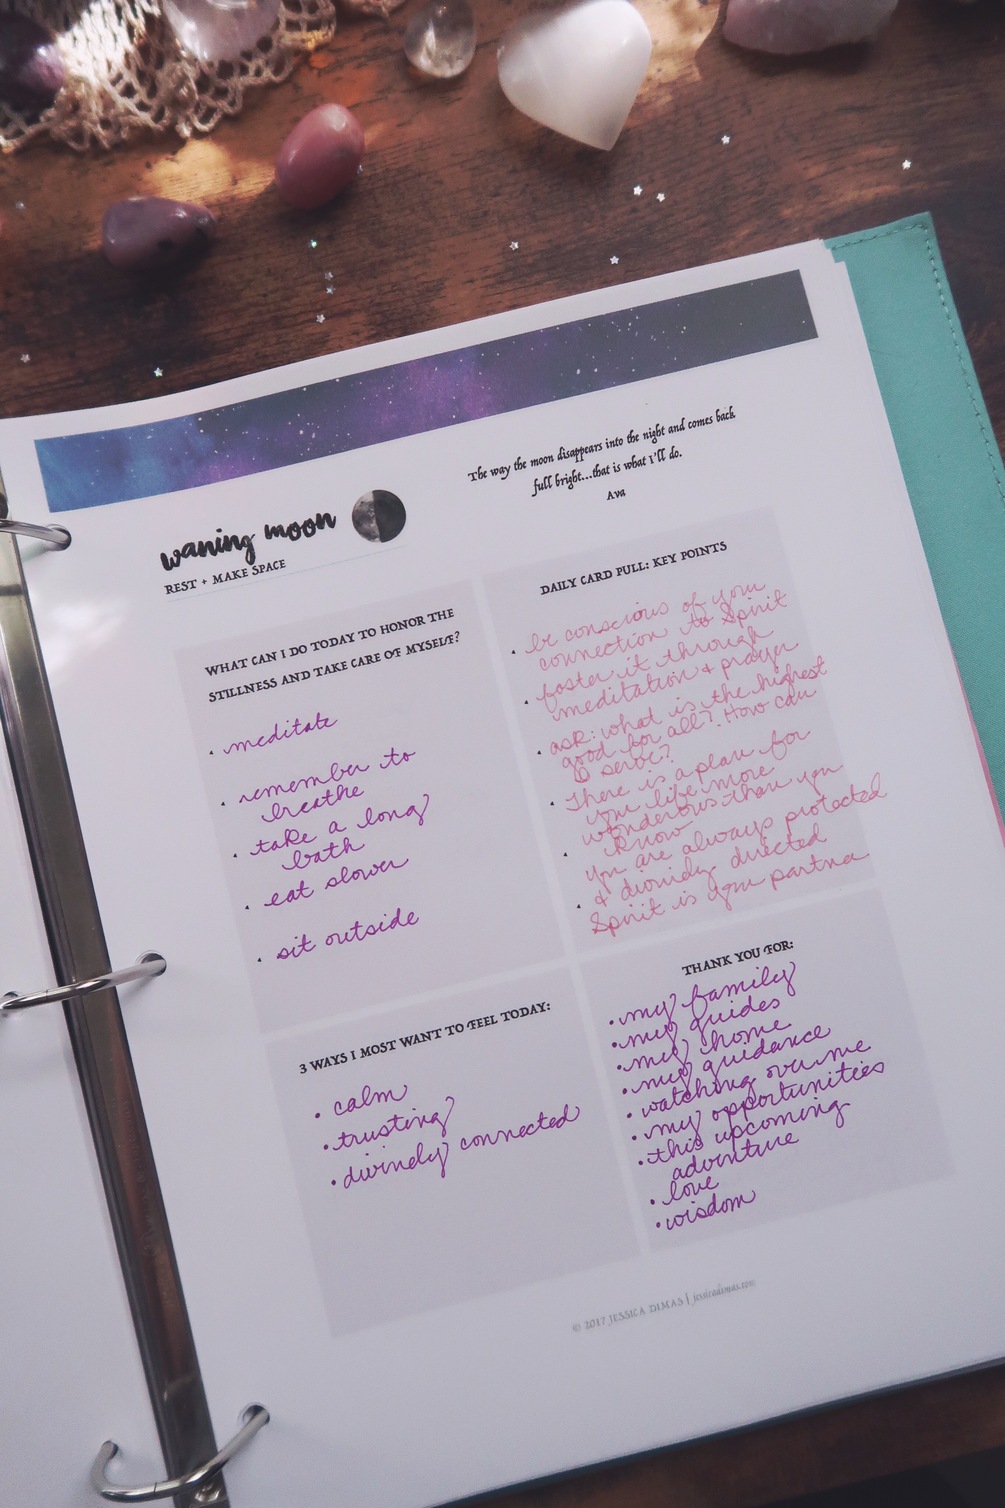 The way the moon disappears into the night and comes back
full bright...that is what I'll do.
Ava
waning moon
REST + MAKE SPACE
WHAT CAN I DO TODAY TO HONOR THE
STILLNESS AND TAKE CARE OF MYSELF?
• meditate
• remember to
breathe
• take a long
bath
• eat slower
• sit outside
DAILY CARD PULL: KEY POINTS
• be conscious of your
connection to Spirit
• foster it through
meditation + prayer
• ask: what is the highest
good for all? How can
I serve?
• There is a plan for
your life more
wonderous than you
know
• you are always protected
& divinely directed
• Spirit is your partner
3 WAYS I MOST WANT TO FEEL TODAY:
• calm
• trusting
• divinely connected
THANK YOU FOR:
• my family
• my guides
• my home
• my guidance
• watching over me
• my opportunities
• this upcoming
adventure
• love
• wisdom
© 2017 JESSICA DIMAS | jessicadimas.com